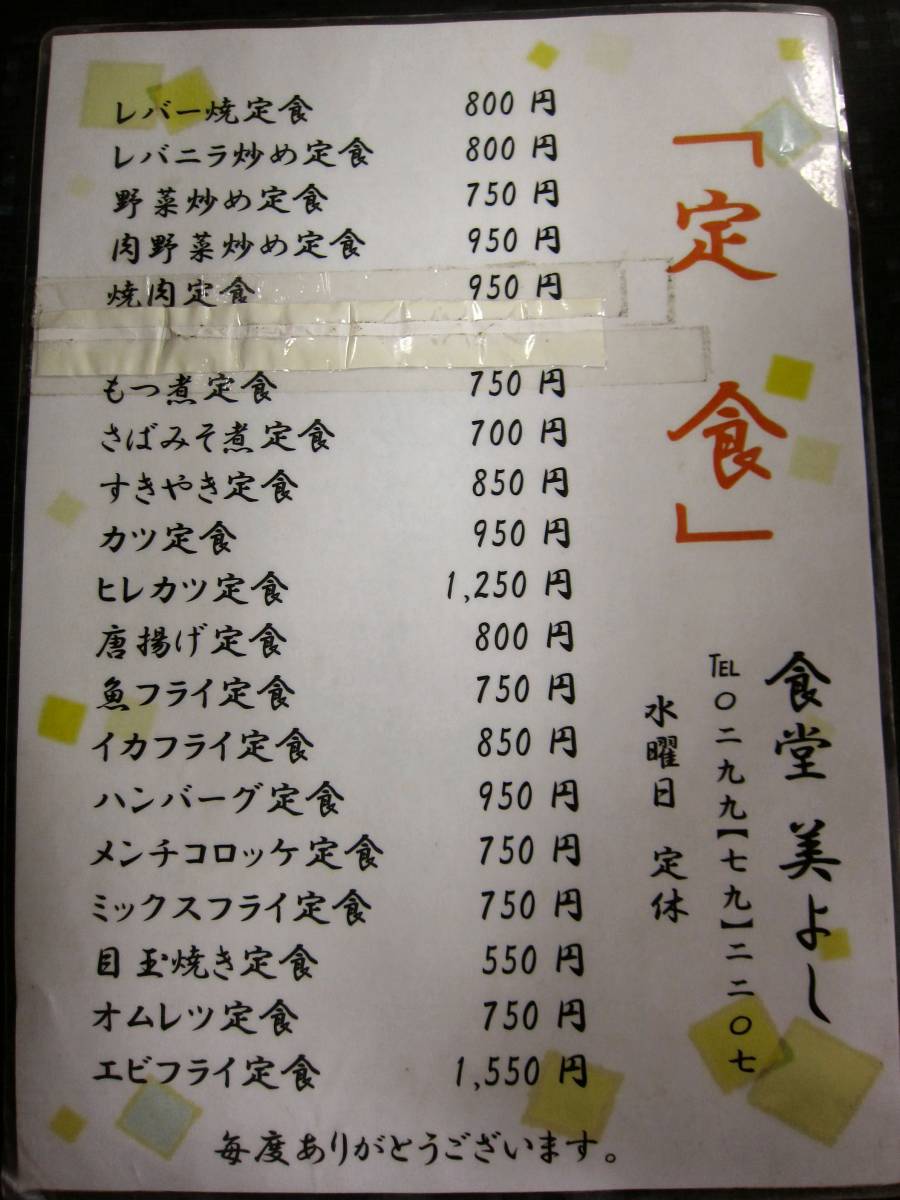 「定食」
レバー焼定食 800円
レバニラ炒め定食 800円
野菜炒め定食 750円
肉野菜炒め定食 950円
焼肉定食 950円
もつ煮定食 750円
さばみそ煮定食 700円
すきやき定食 850円
カツ定食 950円
ヒレカツ定食 1,250円
唐揚げ定食 800円
魚フライ定食 750円
イカフライ定食 850円
ハンバーグ定食 950円
メンチコロッケ定食 750円
ミックスフライ定食 750円
目玉焼き定食 550円
オムレツ定食 750円
エビフライ定食 1,550円
食堂 美よし
TEL〇二九九【七九】二二〇七
水曜日 定休
毎度ありがとうございます。